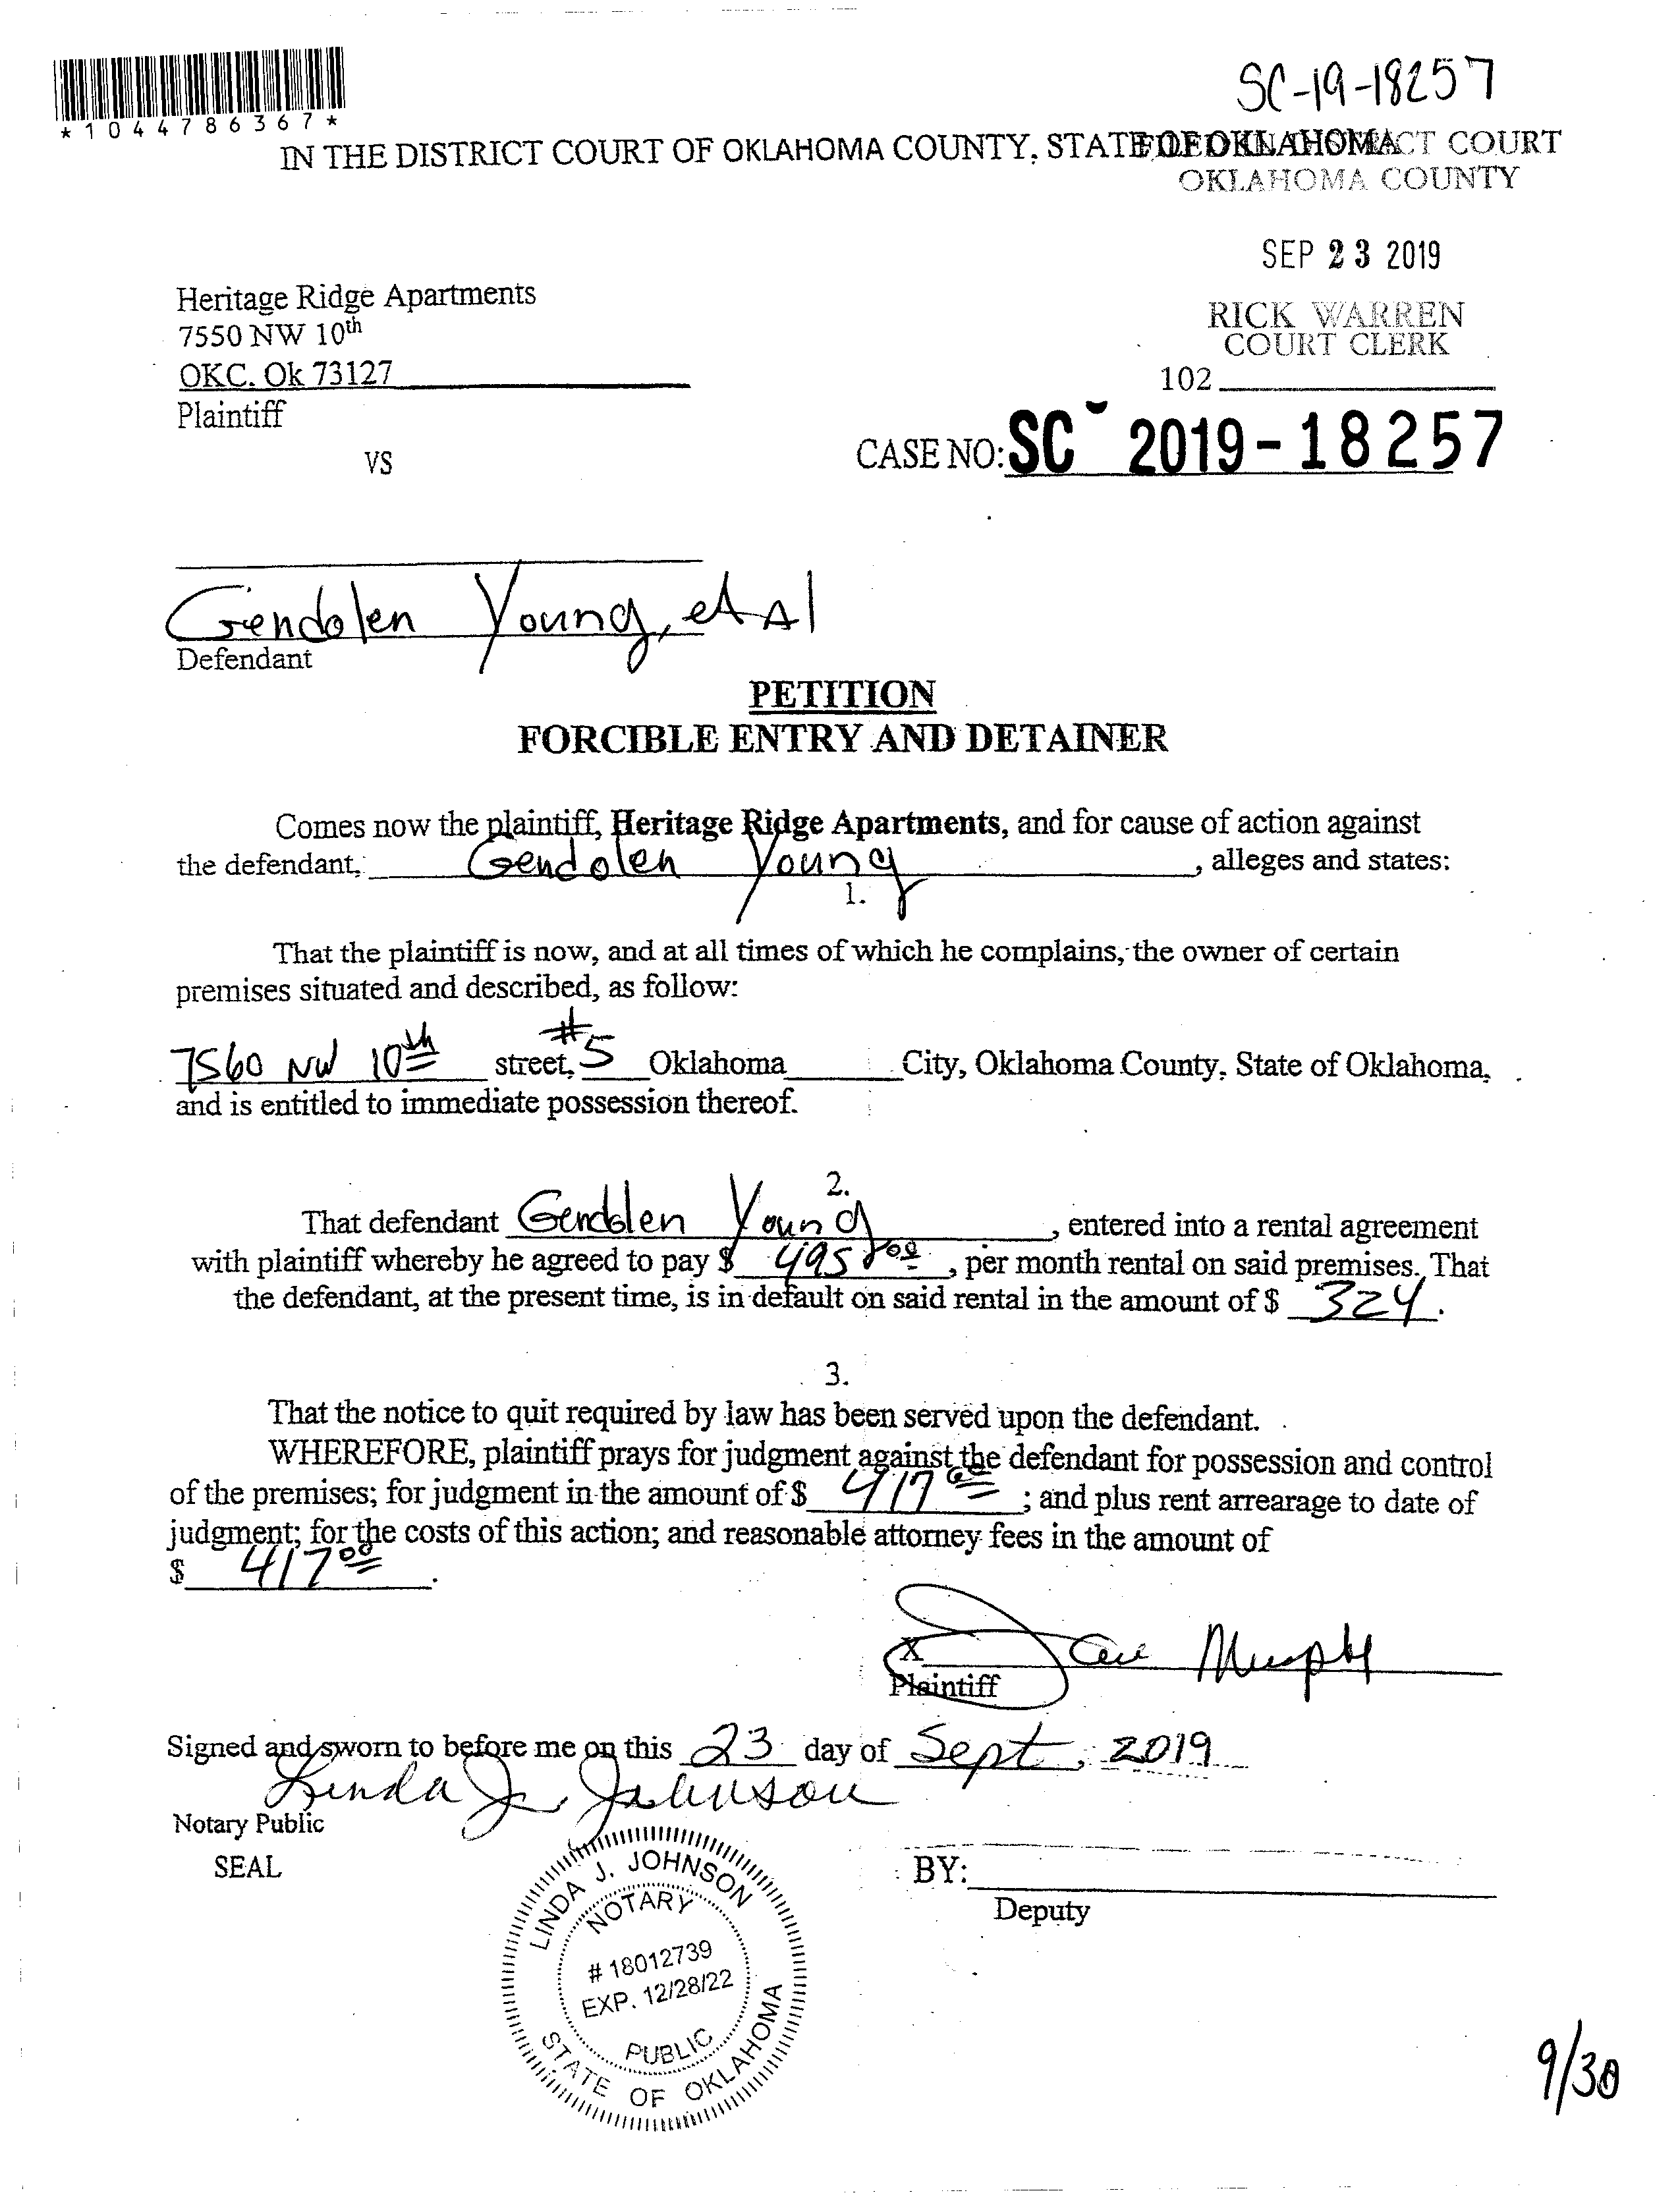 SC-19-18257
*1044786367*
IN THE DISTRICT COURT OF OKLAHOMA COUNTY, STATE OF OKLAHOMA
COURT
OKLAHOMA COUNTY
SEP 23 2019
Heritage Ridge Apartments
7550 NW 10th
OKC. Ok 73127
Plaintiff
RICK WARREN
COURT CLERK
102
VS
CASE NO: SC 2019-18257
Gendolen Young, et Al
Defendant
PETITION
FORCIBLE ENTRY AND DETAINER
Comes now the plaintiff, Heritage Ridge Apartments, and for cause of action against
the defendant, Gendolen Young, alleges and states:
1.
That the plaintiff is now, and at all times of which he complains, the owner of certain
premises situated and described, as follow:
7560 NW 10th street, #5 Oklahoma City, Oklahoma County, State of Oklahoma,
and is entitled to immediate possession thereof.
2.
That defendant Gendolen Young, entered into a rental agreement
with plaintiff whereby he agreed to pay $ 495 00, per month rental on said premises. That
the defendant, at the present time, is in default on said rental in the amount of $ 324.
3.
That the notice to quit required by law has been served upon the defendant.
WHEREFORE, plaintiff prays for judgment against the defendant for possession and control
of the premises; for judgment in the amount of $ 417 00; and plus rent arrearage to date of
judgment; for the costs of this action; and reasonable attorney fees in the amount of
$ 417 00.
X Murphy
Plaintiff
Signed and sworn to before me on this 23 day of Sept, 2019
Linda J. Johnson
Notary Public
SEAL
LINDA J. JOHNSON
NOTARY
# 18012739
EXP. 12/28/22
PUBLIC
STATE OF OKLAHOMA
BY:
Deputy
9/30